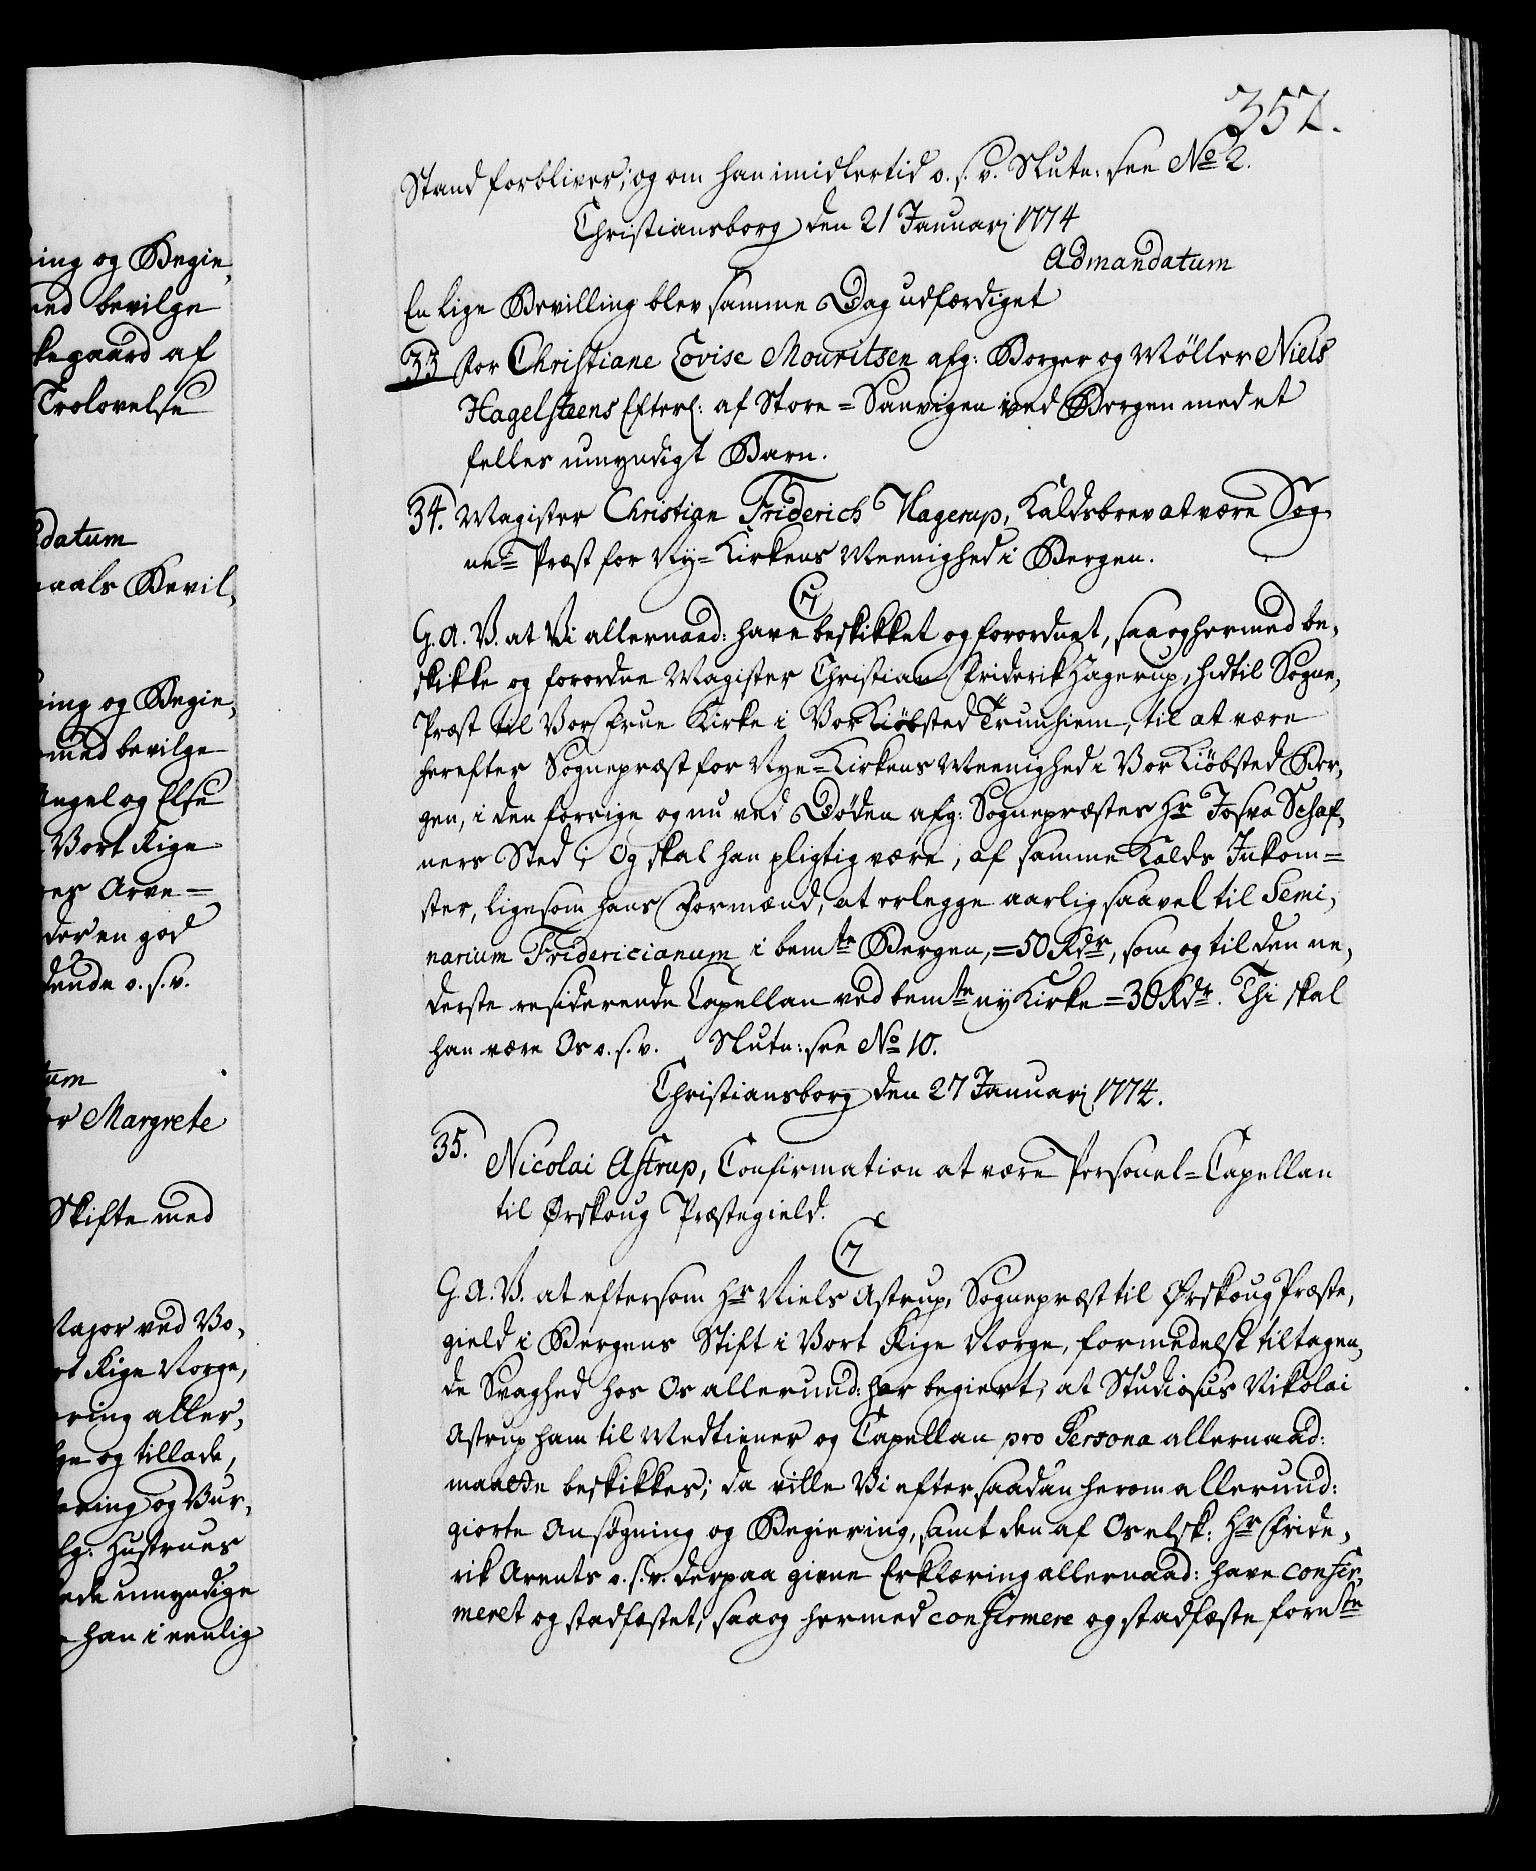 352.
Stand forbliver; og om han imidlertid o. s. v. Slutn: see No 2.
Christiansborg den 21 Januarj 1774
Admandatum
En lige Bevilling blev samme Dag udfærdiget
33 for Christiane Lovise Mouritsen afg: Borger og Møller Niels
Hagelsteens Efterl: af Store=Sanvigen ved Bergen med et
felles umyndigt Barn.
34. Magister Christian Friderich Hagerup, Kaldsbrev at være Sog
ne= Præst for Ny=Kirkens Meenighed i Bergen.
C7
G. A. V. at Vi allernaad: have beskikket og forordnet, saa og hermed be,
skikke og forordne Magister Christian Friderik Hagerup, hidtil Sogne,
Præst til Vor Frue Kirke i Vor Kiøbsted Trunhiem, til at være
herefter Sognepræst for Nye=Kirkens Meenighed i Vor Kiøbsted Ber,
gen, i den forrige og nu ved Døden afg: Sognepræstes Hr Josva Schaf,
ners Sted; Og skal han pligtig være, af samme Kalds Inkom=
ster, ligesom hans Formænd, at erlegge aarlig saavel til Semi,
narium Fridericianum i bemte Bergen, =50 Rdr, som og til den ne,
derste residerende Capellan ved bemte ny Kirke =30 Rdr. Thi skal
han være Os o. s. v. Slutn: see No 10.
Christiansborg den 27 Januarj 1774.
35. Nicolai Astrup, Confirmation at være Personel=Capellan
til Ørskoug Præstegield.
C7
G. A. V. at eftersom Hr Niels Astrup, Sognepræst til Ørskoug Præste,
gield i Bergens Stift i Vort Rige Norge, formedelst tiltagen,
de Svaghed hos Os allerund: har begiert, at Studiosus Nikolai
Astrup ham til Medtiener og Capellan pro Persona allernaad:
maatte beskikkes; da ville Vi efter saadan herom allerund:
giorte Ansøgning og Begiering, samt den af Os elsk: Hr Fride,
rik Arents o. s. v. derpaa givne Erklæring allernaad: have confir,
meret og stadfæstet, saa og hermed confirmere og stadfæste fornte
ing og Begie,
med bevilge
kegaard af
Trolovelse
datum
maals Bevil,
ing og Begie,
med bevilge
Angel og Else
Vort Rige
es Arve=
der en god
dende o. s. v.
tum
or Margrete
Skifte med
Major ved Bo,
rt Rige Norge,
ring aller,
ge og tillade,
ering og Vur,
lg: Hustrues
ede umyndige
han i eenlig